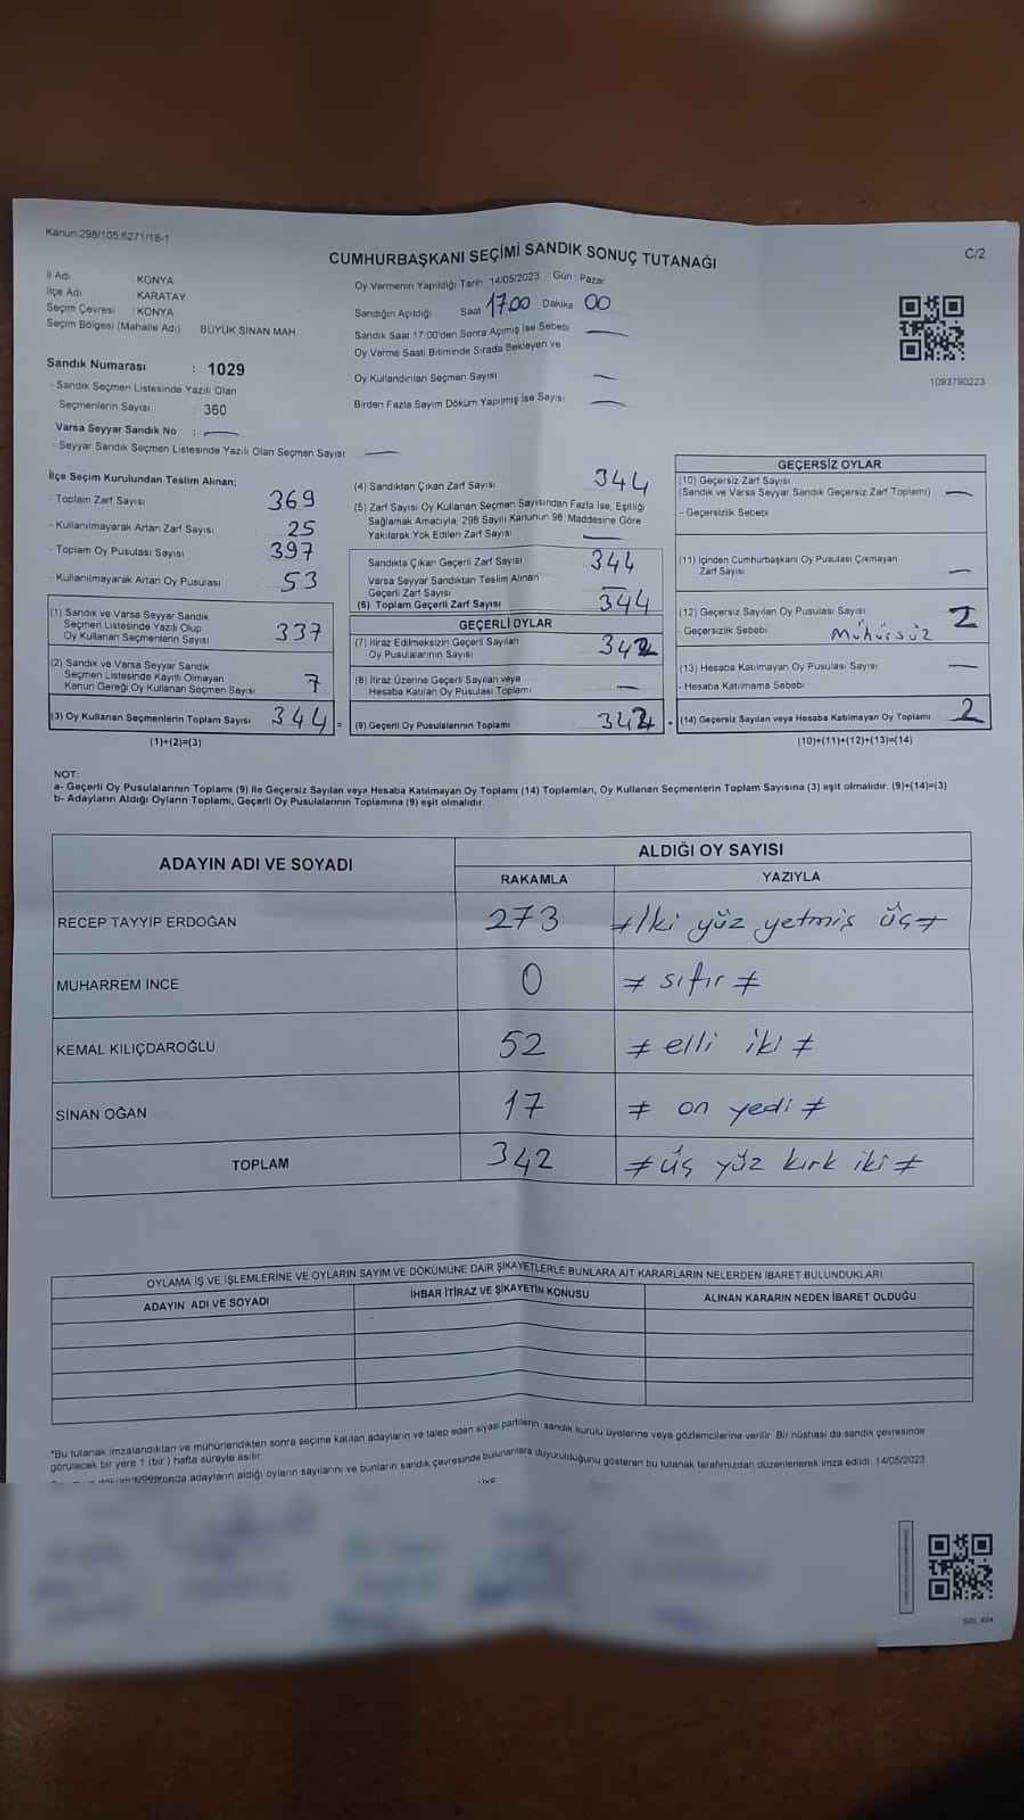 Kanun:298/105.6271/18-1
CUMHURBAŞKANI SEÇİMİ SANDIK SONUÇ TUTANAĞI
C/2
İl Adı KONYA
İlçe Adı KARATAY
Seçim Çevresi : KONYA
Seçim Bölgesi (Mahalle Adı) BÜYÜK SİNAN MAH.
Sandık Numarası : 1029
- Sandık Seçmen Listesinde Yazılı Olan
Seçmenlerin Sayısı 360
Varsa Seyyar Sandık No : —
- Seyyar Sandık Seçmen Listesinde Yazılı Olan Seçmen Sayısı —
Oy Vermenin Yapıldığı Tarih 14/05/2023 Gün : Pazar
Sandığın Açıldığı Saat 17.00 Dakika 00
Sandık Saat 17:00'den Sonra Açımış İse Sebebi —
Oy Verme Saati Bitiminde Sırada Bekleyen ve
Oy Kullandırılan Seçmen Sayısı —
Birden Fazla Sayım Döküm Yapılmış İse Sayısı —
1093790223
İlçe Seçim Kurulundan Teslim Alınan;
- Toplam Zarf Sayısı 369
- Kullanılmayarak Artan Zarf Sayısı 25
- Toplam Oy Pusulası Sayısı 397
- Kullanılmayarak Artan Oy Pusulası 53
(1) Sandık ve Varsa Seyyar Sandık
Seçmen Listesinde Yazılı Olup
Oy Kullanan Seçmenlerin Sayısı 337
(2) Sandık ve Varsa Seyyar Sandık
Seçmen Listesinde Kayıtlı Olmayan
Kanun Gereği Oy Kullanan Seçmen Sayısı 7
(3) Oy Kullanan Seçmenlerin Toplam Sayısı 344 =
(1)+(2)=(3)
(4) Sandıktan Çıkan Zarf Sayısı 344
(5) Zarf Sayısı Oy Kullanan Seçmen Sayısından Fazla İse, Eşitliği
Sağlamak Amacıyla, 298 Sayılı Kanunun 98. Maddesine Göre
Yakılarak Yok Edilen Zarf Sayısı —
Sandıkta Çıkan Geçerli Zarf Sayısı 344
Varsa Seyyar Sandıktan Teslim Alınan
Geçerli Zarf Sayısı —
(6) Toplam Geçerli Zarf Sayısı 344
GEÇERLİ OYLAR
(7) İtiraz Edilmeksizin Geçerli Sayılan
Oy Pusulalarının Sayısı 342
(8) İtiraz Üzerine Geçerli Sayılan veya
Hesaba Katılan Oy Pusulası Toplamı —
(9) Geçerli Oy Pusulalarının Toplamı 342 +
GEÇERSİZ OYLAR
(10) Geçersiz Zarf Sayısı
(Sandık ve Varsa Seyyar Sandık Geçersiz Zarf Toplamı) —
- Geçersizlik Sebebi
(11) İçinden Cumhurbaşkanı Oy Pusulası Çıkmayan
Zarf Sayısı —
(12) Geçersiz Sayılan Oy Pusulası Sayısı 2
Geçersizlik Sebebi Mühürsüz
(13) Hesaba Katılmayan Oy Pusulası Sayısı —
- Hesaba Katılmama Sebebi
(14) Geçersiz Sayılan veya Hesaba Katılmayan Oy Toplamı 2
(10)+(11)+(12)+(13)=(14)
NOT:
a- Geçerli Oy Pusulalarının Toplamı (9) ile Geçersiz Sayılan veya Hesaba Katılmayan Oy Toplamı (14) Toplamları, Oy Kullanan Seçmenlerin Toplam Sayısına (3) eşit olmalıdır. (9)+(14)=(3)
b- Adayların Aldığı Oyların Toplamı, Geçerli Oy Pusulalarının Toplamına (9) eşit olmalıdır.
ADAYIN ADI VE SOYADI
ALDIĞI OY SAYISI
RAKAMLA YAZIYLA
RECEP TAYYİP ERDOĞAN 273 ≠ İki yüz yetmiş üç ≠
MUHARREM İNCE 0 ≠ sıfır ≠
KEMAL KILIÇDAROĞLU 52 ≠ elli iki ≠
SİNAN OĞAN 17 ≠ on yedi ≠
TOPLAM 342 ≠ üç yüz kırk iki ≠
OYLAMA İŞ VE İŞLEMLERİNE VE OYLARIN SAYIM VE DÖKÜMÜNE DAİR ŞİKAYETLERLE BUNLARA AİT KARARLARIN NELERDEN İBARET BULUNDUKLARI
ADAYIN ADI VE SOYADI İHBAR İTİRAZ VE ŞİKAYETİN KONUSU ALINAN KARARIN NEDEN İBARET OLDUĞU
*Bu tutanak imzalandıktan ve mühürlendikten sonra seçime katılan adayların ve talep eden siyasi partilerin, sandık kurulu üyelerine veya gözlemcilerine verilir. Bir nüshası da sandık çevresinde
görülecek bir yere 1 (bir) hafta süreyle asılır.
adayların aldığı oyların sayılarını ve bunların sandık çevresinde bulunanlara duyurulduğunu gösteren bu tutanak tarafımızdan düzenlenerek imza edildi. 14/05/2023